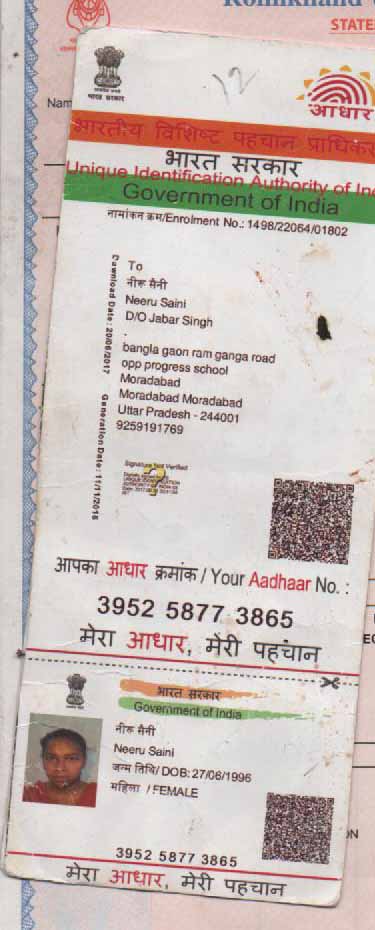 STATE
Nam
भारत सरकार
12
आधार
भारतीय विशिष्ट पहचान प्राधिकर
भारत सरकार
Unique Identification Authority of In
Government of India
नामांकन क्रम/Enrolment No.: 1498/22064/01802
To
नीरू सैनी
Neeru Saini
D/O Jabar Singh
.
bangla gaon ram ganga road
opp progress school
Moradabad
Moradabad Moradabad
Uttar Pradesh - 244001
9259191769
Download Date: 20/06/2017
Generation Date: 11/11/2016
Signature Not Verified
आपका आधार क्रमांक / Your Aadhaar No. :
3952 5877 3865
मेरा आधार, मेरी पहचान
भारत सरकार
Government of India
नीरू सैनी
Neeru Saini
जन्म तिथि/ DOB: 27/06/1996
महिला / FEMALE
3952 5877 3865
मेरा आधार, मेरी पहचान